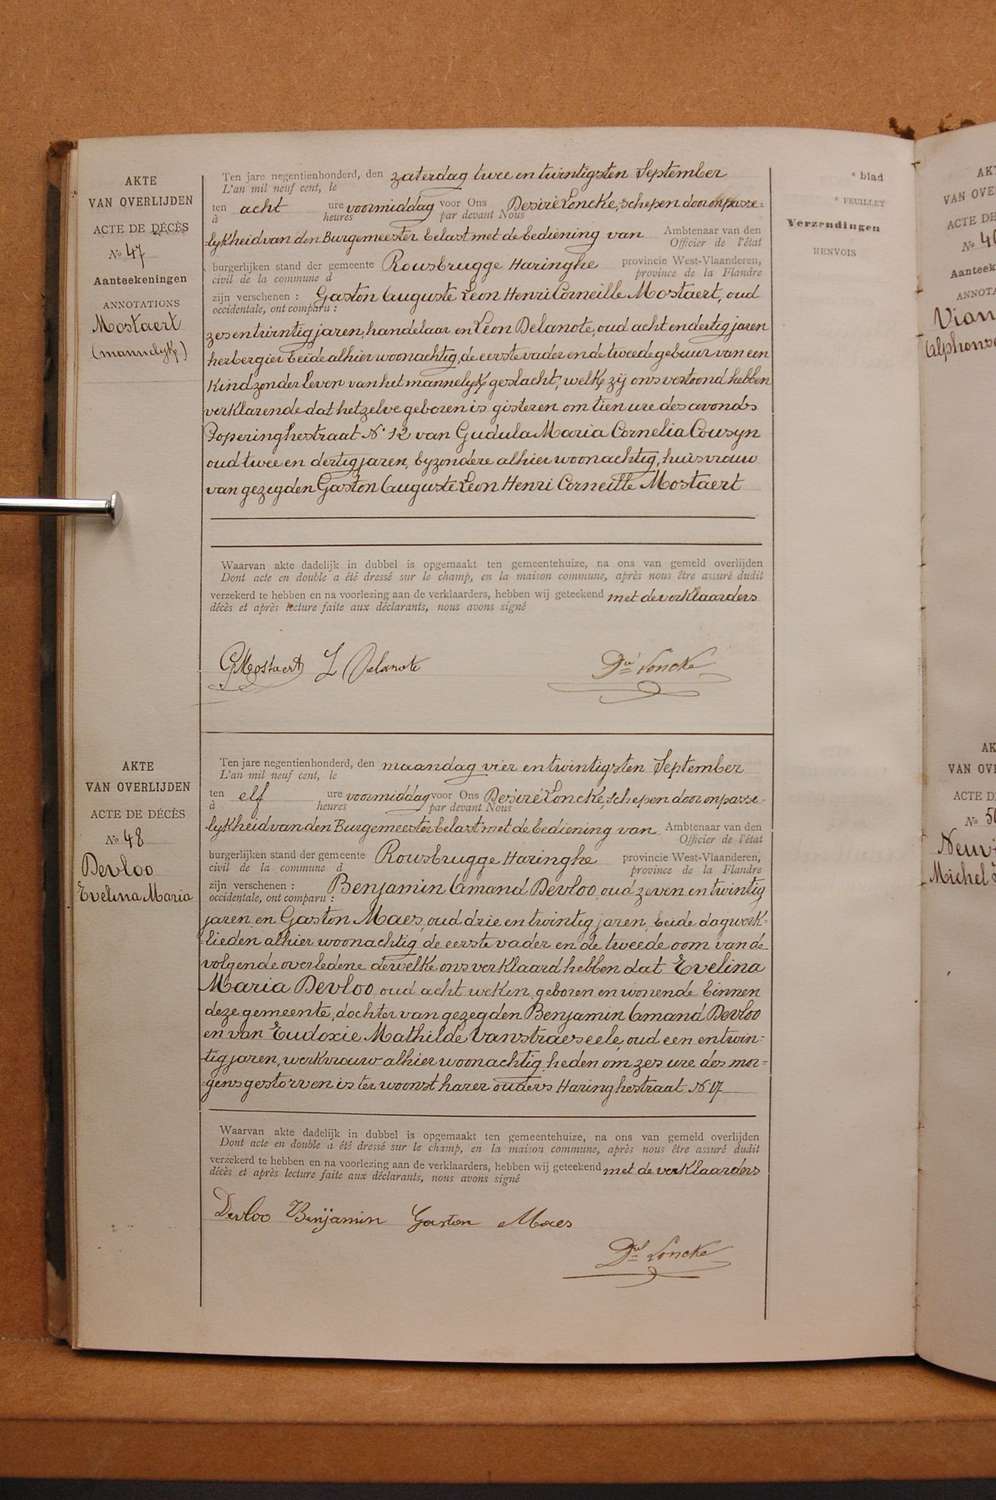 AKTE
VAN OVERLIJDEN
ACTE DE DÉCÈS
No 47
Aanteekeningen
ANNOTATIONS
Mostaert
(mannelijk)
Ten jare negentienhonderd, den zaterdag twee en twintigsten September
L'an mil neuf cent, le
ten acht ure voormiddag voor Ons Desiré Loncke, schepen door onpasse-
à heures par devant Nous
lijkheid van den Burgemeester belast met de bediening van Ambtenaar van den
Officier de l'état
burgerlijken stand der gemeente Rousbrugge Haringhe provincie West-Vlaanderen,
civil de la commune d province de la Flandre
zijn verschenen : Gaston Auguste Leon Henri Corneille Mostaert, oud
occidentale, ont comparu :
zes en twintig jaren, handelaar en Leon Delanote, oud acht en dertig jaren
herbergier beide alhier woonachtig, de eerste vader en de tweede gebuur van een
Kind zonder leven van het mannelijk geslacht, welk zij ons vertoond hebben
verklarende dat hetzelve geboren is gisteren om tien ure des avonds
Poperinghestraat No 12 van Gudula Maria Cornelia Cousyn
oud twee en dertig jaren, byzondere alhier woonachtig, huisvrouw
van gezegden Gaston Auguste Leon Henri Corneille Mostaert
Waarvan akte dadelijk in dubbel is opgemaakt ten gemeentehuize, na ons van gemeld overlijden
Dont acte en double a été dressé sur le champ, en la maison commune, après nous être assuré dudit
verzekerd te hebben en na voorlezing aan de verklaarders, hebben wij geteekend met de verklaarders
décès et après lecture faite aux déclarants, nous avons signé
G Mostaert L Delanote Dré Loncke
AKTE
VAN OVERLIJDEN
ACTE DE DÉCÈS
No 48
Devloo
Evelina Maria
Ten jare negentienhonderd, den maandag vier en twintigsten September
L'an mil neuf cent, le
ten elf ure voormiddag voor Ons Desiré Loncke schepen door onpasse-
à heures par devant Nous
lykheid van den Burgemeester belast met de bediening van Ambtenaar van den
Officier de l'état
burgerlijken stand der gemeente Rousbrugge Haringhe provincie West-Vlaanderen,
civil de la commune d province de la Flandre
zijn verschenen : Benjamin Amand Devloo, oud zeven en twintig
occidentale, ont comparu :
jaren en Gaston Maes, oud drie en twintig jaren, beide dagwerk-
lieden alhier woonachtig de eerste vader en de tweede oom van de
volgende overledene dewelke ons verklaard hebben dat Evelina
Maria Devloo oud acht weken, geboren en wonende binnen
deze gemeente, dochter van gezegden Benjamin Amand Devloo
en van Eudoxie Mathilde Vanstraeseele, oud een en twin-
tig jaren, werkvrouw alhier woonachtig heden om zes ure des mor-
gens gestorven is ter woonst harer ouders Haringhestraat No 17
Waarvan akte dadelijk in dubbel is opgemaakt ten gemeentehuize, na ons van gemeld overlijden
Dont acte en double a été dressé sur le champ, en la maison commune, après nous être assuré dudit
verzekerd te hebben en na voorlezing aan de verklaarders, hebben wij geteekend met de verklaarders
décès et après lecture faite aux déclarants, nous avons signé
Devloo Benjamin Gaston Maes
Dré Loncke
e blad
e FEUILLET
Verzendingen
RENVOIS
AK
VAN OVER
ACTE D
No
Aanteek
ANNOTA
Vian
Alphonse
AK
VAN OVE
ACTE D
No
Neuv
Michel